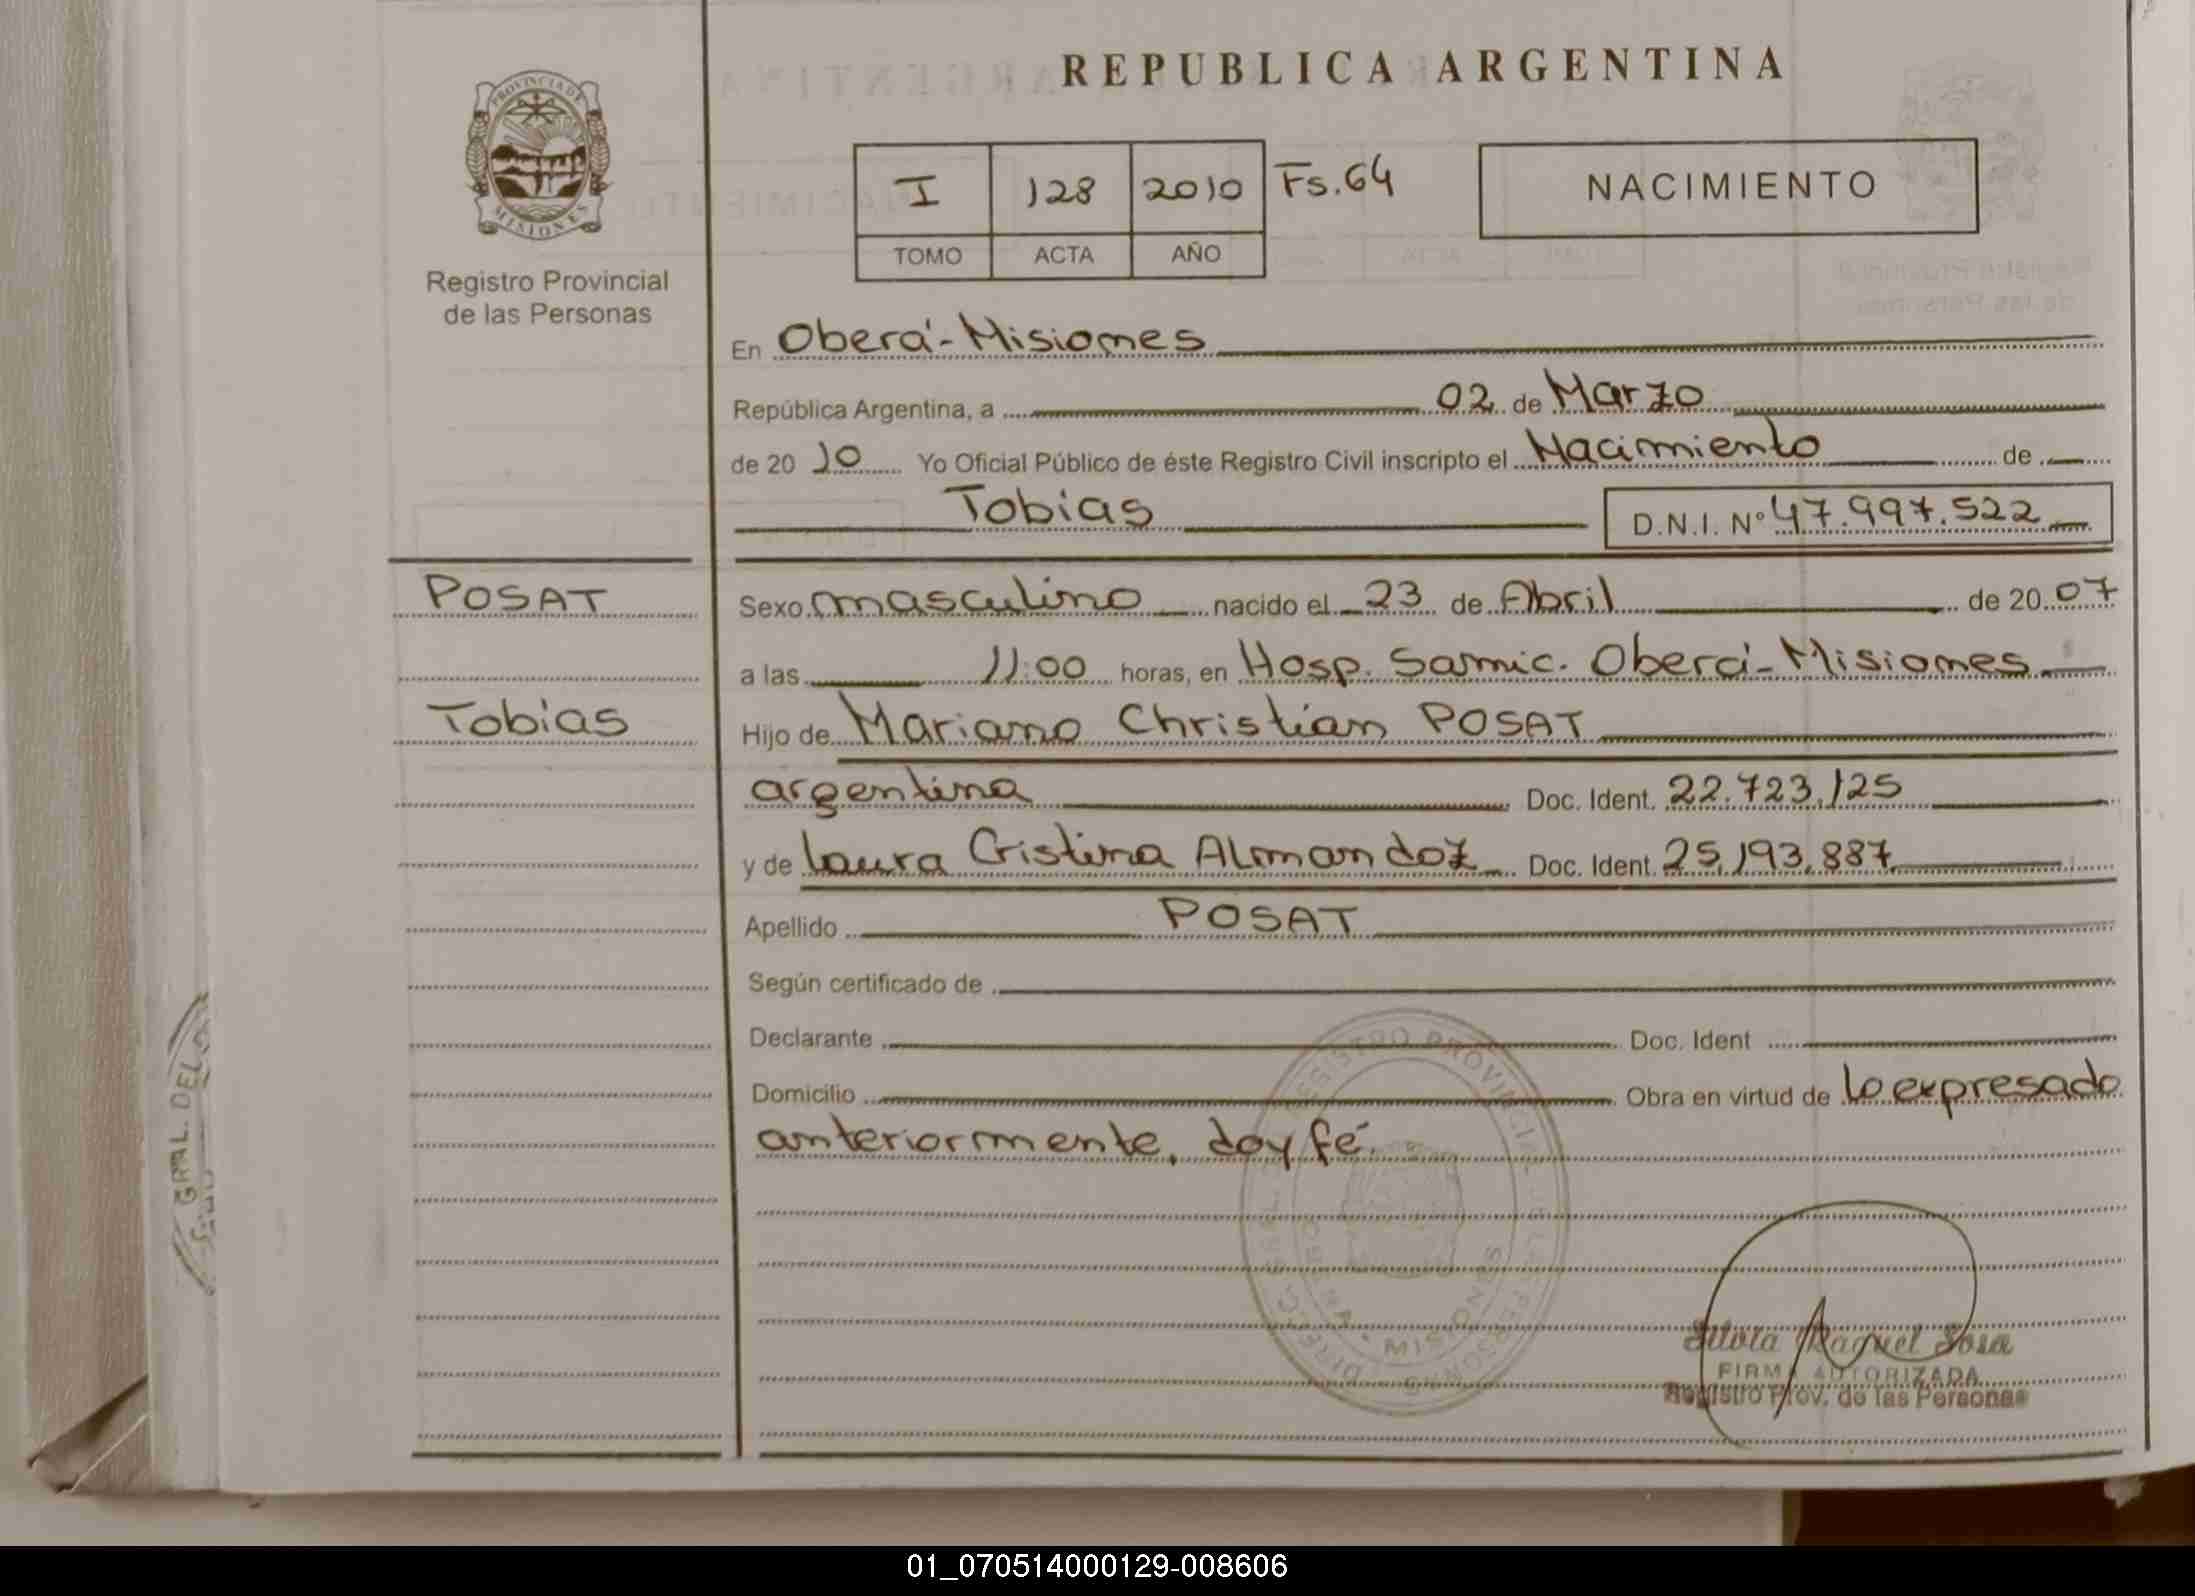 REPUBLICA ARGENTINA
PROVINCIA DE
MISIONES
Registro Provincial
de las Personas
I 128 2010 Fs. 64
TOMO ACTA AÑO
NACIMIENTO
En Oberá - Misiones
República Argentina, a 02 de Marzo
de 20 10 Yo Oficial Público de éste Registro Civil inscripto el Nacimiento de
Tobias D.N.I. N° 47.997.522
POSAT
Tobias
Sexo masculino nacido el 23 de Abril de 20 07
a las 11:00 horas, en Hosp. Samic. Oberá - Misiones
Hijo de Mariano Christian POSAT
argentina Doc. Ident. 22.723.125
y de Laura Cristina Almandoz Doc. Ident. 25.193.887
Apellido POSAT
Según certificado de
Declarante Doc. Ident
Domicilio Obra en virtud de lo expresado
anteriormente, doy fé.
REGISTRO PROVINCIAL DE LAS PERSONAS
MISIONES
Silvia Raquel Sosa
FIRMA AUTORIZADA
Registro Prov. de las Personas
GRAL. DEL
01_070514000129-008606